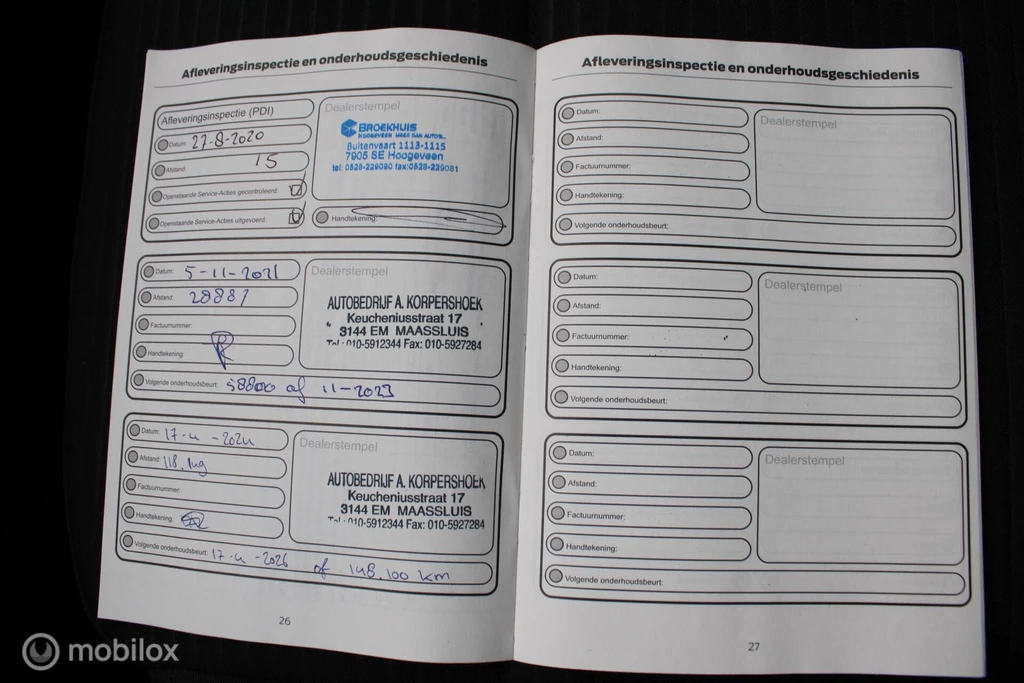 Afleveringsinspectie en onderhoudsgeschiedenis
Afleveringsinspectie (PDI)
Datum: 27-8-2020
Afstand: 15
Openstaande Service-Acties gecontroleerd:
Openstaande Service-Acties uitgevoerd:
Dealerstempel
BROEKHUIS
HOOGEVEEN MEER DAN AUTO'S...
Buitenvaart 1113-1115
7905 SE Hoogeveen
tel: 0528-229080 fax:0528-229081
Handtekening:
Datum: 5-11-2021
Afstand: 28881
Factuurnummer:
Handtekening:
Dealerstempel
AUTOBEDRIJF A. KORPERSHOEK
Keucheniusstraat 17
3144 EM MAASSLUIS
Tel.: 010-5912344 Fax: 010-5927284
Volgende onderhoudsbeurt: 58800 of 11-2023
Datum: 17-4-2024
Afstand:
Factuurnummer:
Handtekening:
Dealerstempel
AUTOBEDRIJF A. KORPERSHOEK
Keucheniusstraat 17
3144 EM MAASSLUIS
Tel.: 010-5912344 Fax: 010-5927284
Volgende onderhoudsbeurt: 17-4-2026 of 148.100 km
26
Afleveringsinspectie en onderhoudsgeschiedenis
Datum:
Afstand:
Factuurnummer:
Handtekening:
Dealerstempel
Volgende onderhoudsbeurt:
Datum:
Afstand:
Factuurnummer:
Handtekening:
Dealerstempel
Volgende onderhoudsbeurt:
Datum:
Afstand:
Factuurnummer:
Handtekening:
Dealerstempel
Volgende onderhoudsbeurt:
27
mobilox